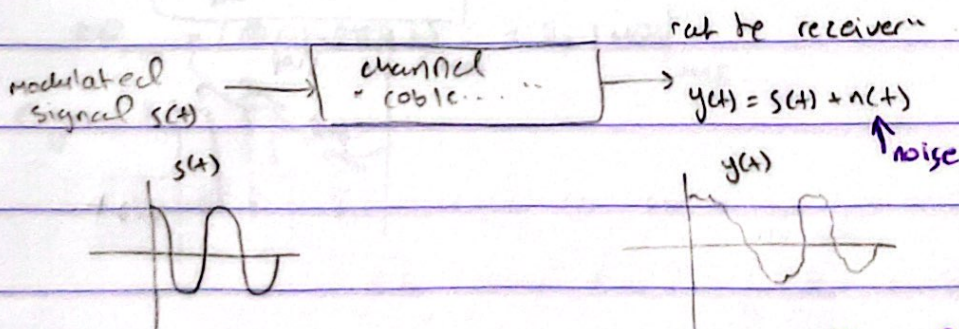 "at the receiver"
modulated signal s(t)
channel
"cable.... "
y(t) = s(t) + n(t)
noise
s(t)
y(t)